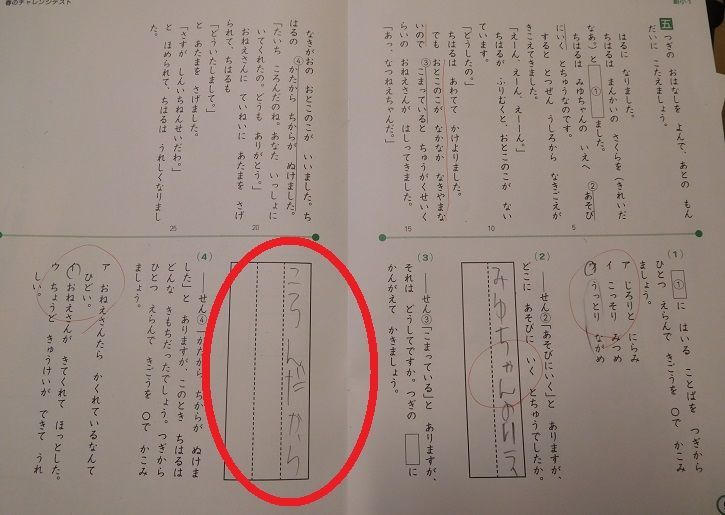 春のチャレンジテスト
新小1
五 つぎの おはなしを よんで、あとの もん
だいに こたえましょう。
はるに なりました。
ちはるは まんかいの さくらを (きれいだ
なあ。)と ① ました。
ちはるは みゆちゃんの いえへ ②あそび
にいく とちゅうなのです。
すると とつぜん うしろから なきごえが
きこえてきました。
「えーん、えーん、えーん。」
ちはるが ふりむくと、おとこのこが ない
ています。
「どうしたの。」
ちはるは あわてて かけよりました。
でも おとこのこが なかなか なきやまな
いので ③こまっていると ちゅうがくせいく
らいの おねえさんが はしってきました。
「あっ、なつねえちゃんだ。」
なきがおの おとこのこが いいました。ち
はるの ④かたから ちからが ぬけました。
「たいち ころんだのね。あなた いっしょに
いてくれたの。どうも ありがとう。」
おねえさんに ていねいに あたまを さげ
られて、ちはるも
「どういたしまして。」
と あたまを さげました。
「さすが しんいちねんせいだわ。」
と ほめられて、ちはるは うれしくなりまし
た。
5
10
15
20
25
(1) ① に はいる ことばを つぎから
ひとつ えらんで きごうを ○で かこみ
ましょう。
ア じろりと にらみ
イ こっそり みつめ
ウ うっとり ながめ
(2) ――せん②「あそびにいく」と ありますが、
どこに あそびに いく とちゅうでしたか。
みゆちゃんのいえ
(3) ――せん③「こまっている」と ありますが、
それは どうしてですか。つぎの □に
かんがえて かきましょう。
ころんだから
(4) ――せん④「かたから ちからが ぬけま
した」と ありますが、このとき ちはるは
どんな きもちだったでしょう。つぎから
ひとつ えらんで きごうを ○で かこみ
ましょう。
ア おねえさんたら かくれているなんて
ひどい。
イ おねえさんが きてくれて ほっとした。
ウ ちょうど きゅうけいが できて うれ
しい。